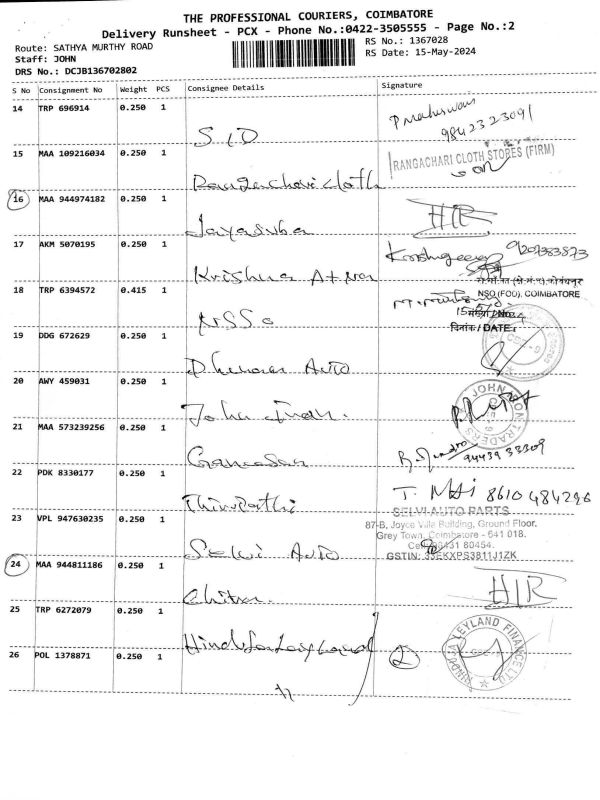 THE PROFESSIONAL COURIERS, COIMBATORE
Delivery Runsheet - PCX - Phone No.:0422-3505555 - Page No.:2
Route: SATHYA MURTHY ROAD
RS No.: 1367028
Staff: JOHN
RS Date: 15-May-2024
DRS No.: DCJB136702802
S No Consignment No Weight PCS Consignee Details Signature
14 TRP 696914 0.250 1
9842323091
15 MAA 109216034 0.250 1
RANGACHARI CLOTH STORES (FIRM)
Rangachari cloth
16 MAA 944974182 0.250 1
Jayasuba
17 AKM 5070195 0.250 1
Krishna
18 TRP 6394572 0.415 1
NSO (FOD), COIMBATORE
NSSO
दिनांक / DATE :
19 DDG 672629 0.250 1
Auto
20 AWY 459031 0.250 1
John
21 MAA 573239256 0.250 1
Ganesan
9443933309
22 PDK 8330177 0.250 1
T. Mani 8610484296
Thirupathi
SELVI AUTO PARTS
23 VPL 947630235 0.250 1
87-B, Joyce Villa Building, Ground Floor.
Grey Town, Coimbatore - 641 018.
Selvi Auto
GSTIN: 33EKXPS3811J1ZK
24 MAA 944811186 0.250 1
Chitra
25 TRP 6272079 0.250 1
HINDUJA LEYLAND FINANCE LTD
Hinduja Leyland
26 POL 1378871 0.250 1